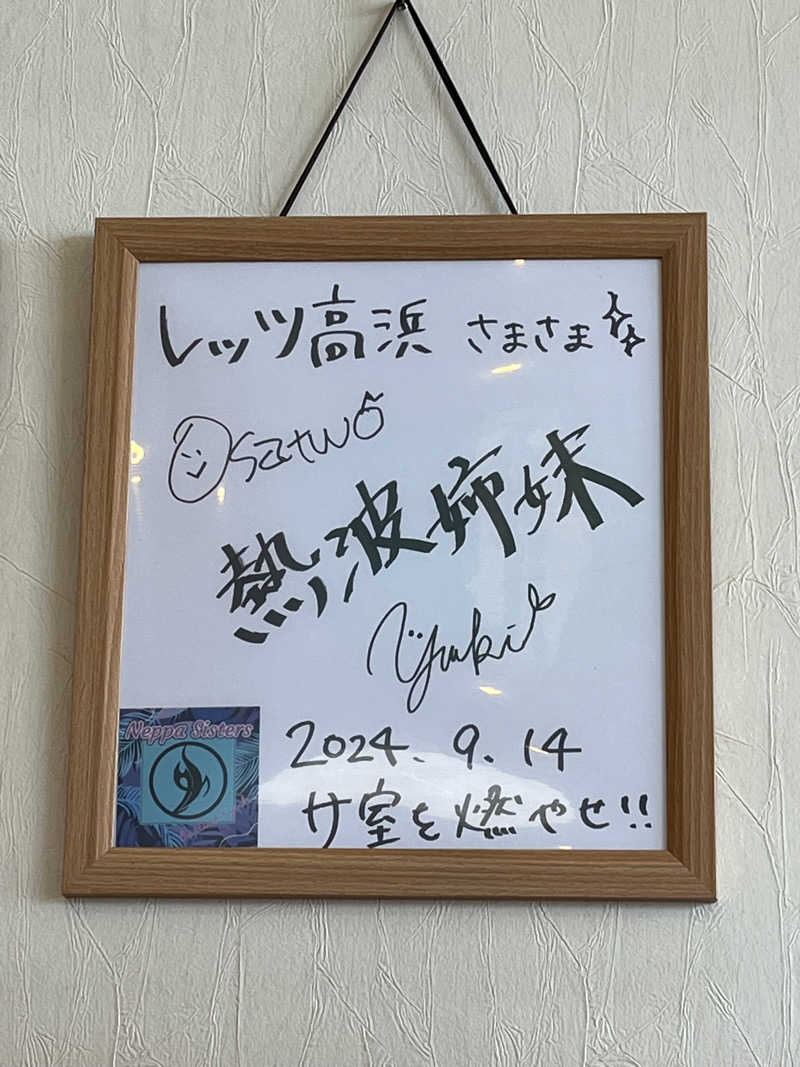 レッツ高浜 さまさま
Osatwo
熱波姉妹
Yuki
Neppa Sisters
2024.9.14
サ室を燃やせ!!